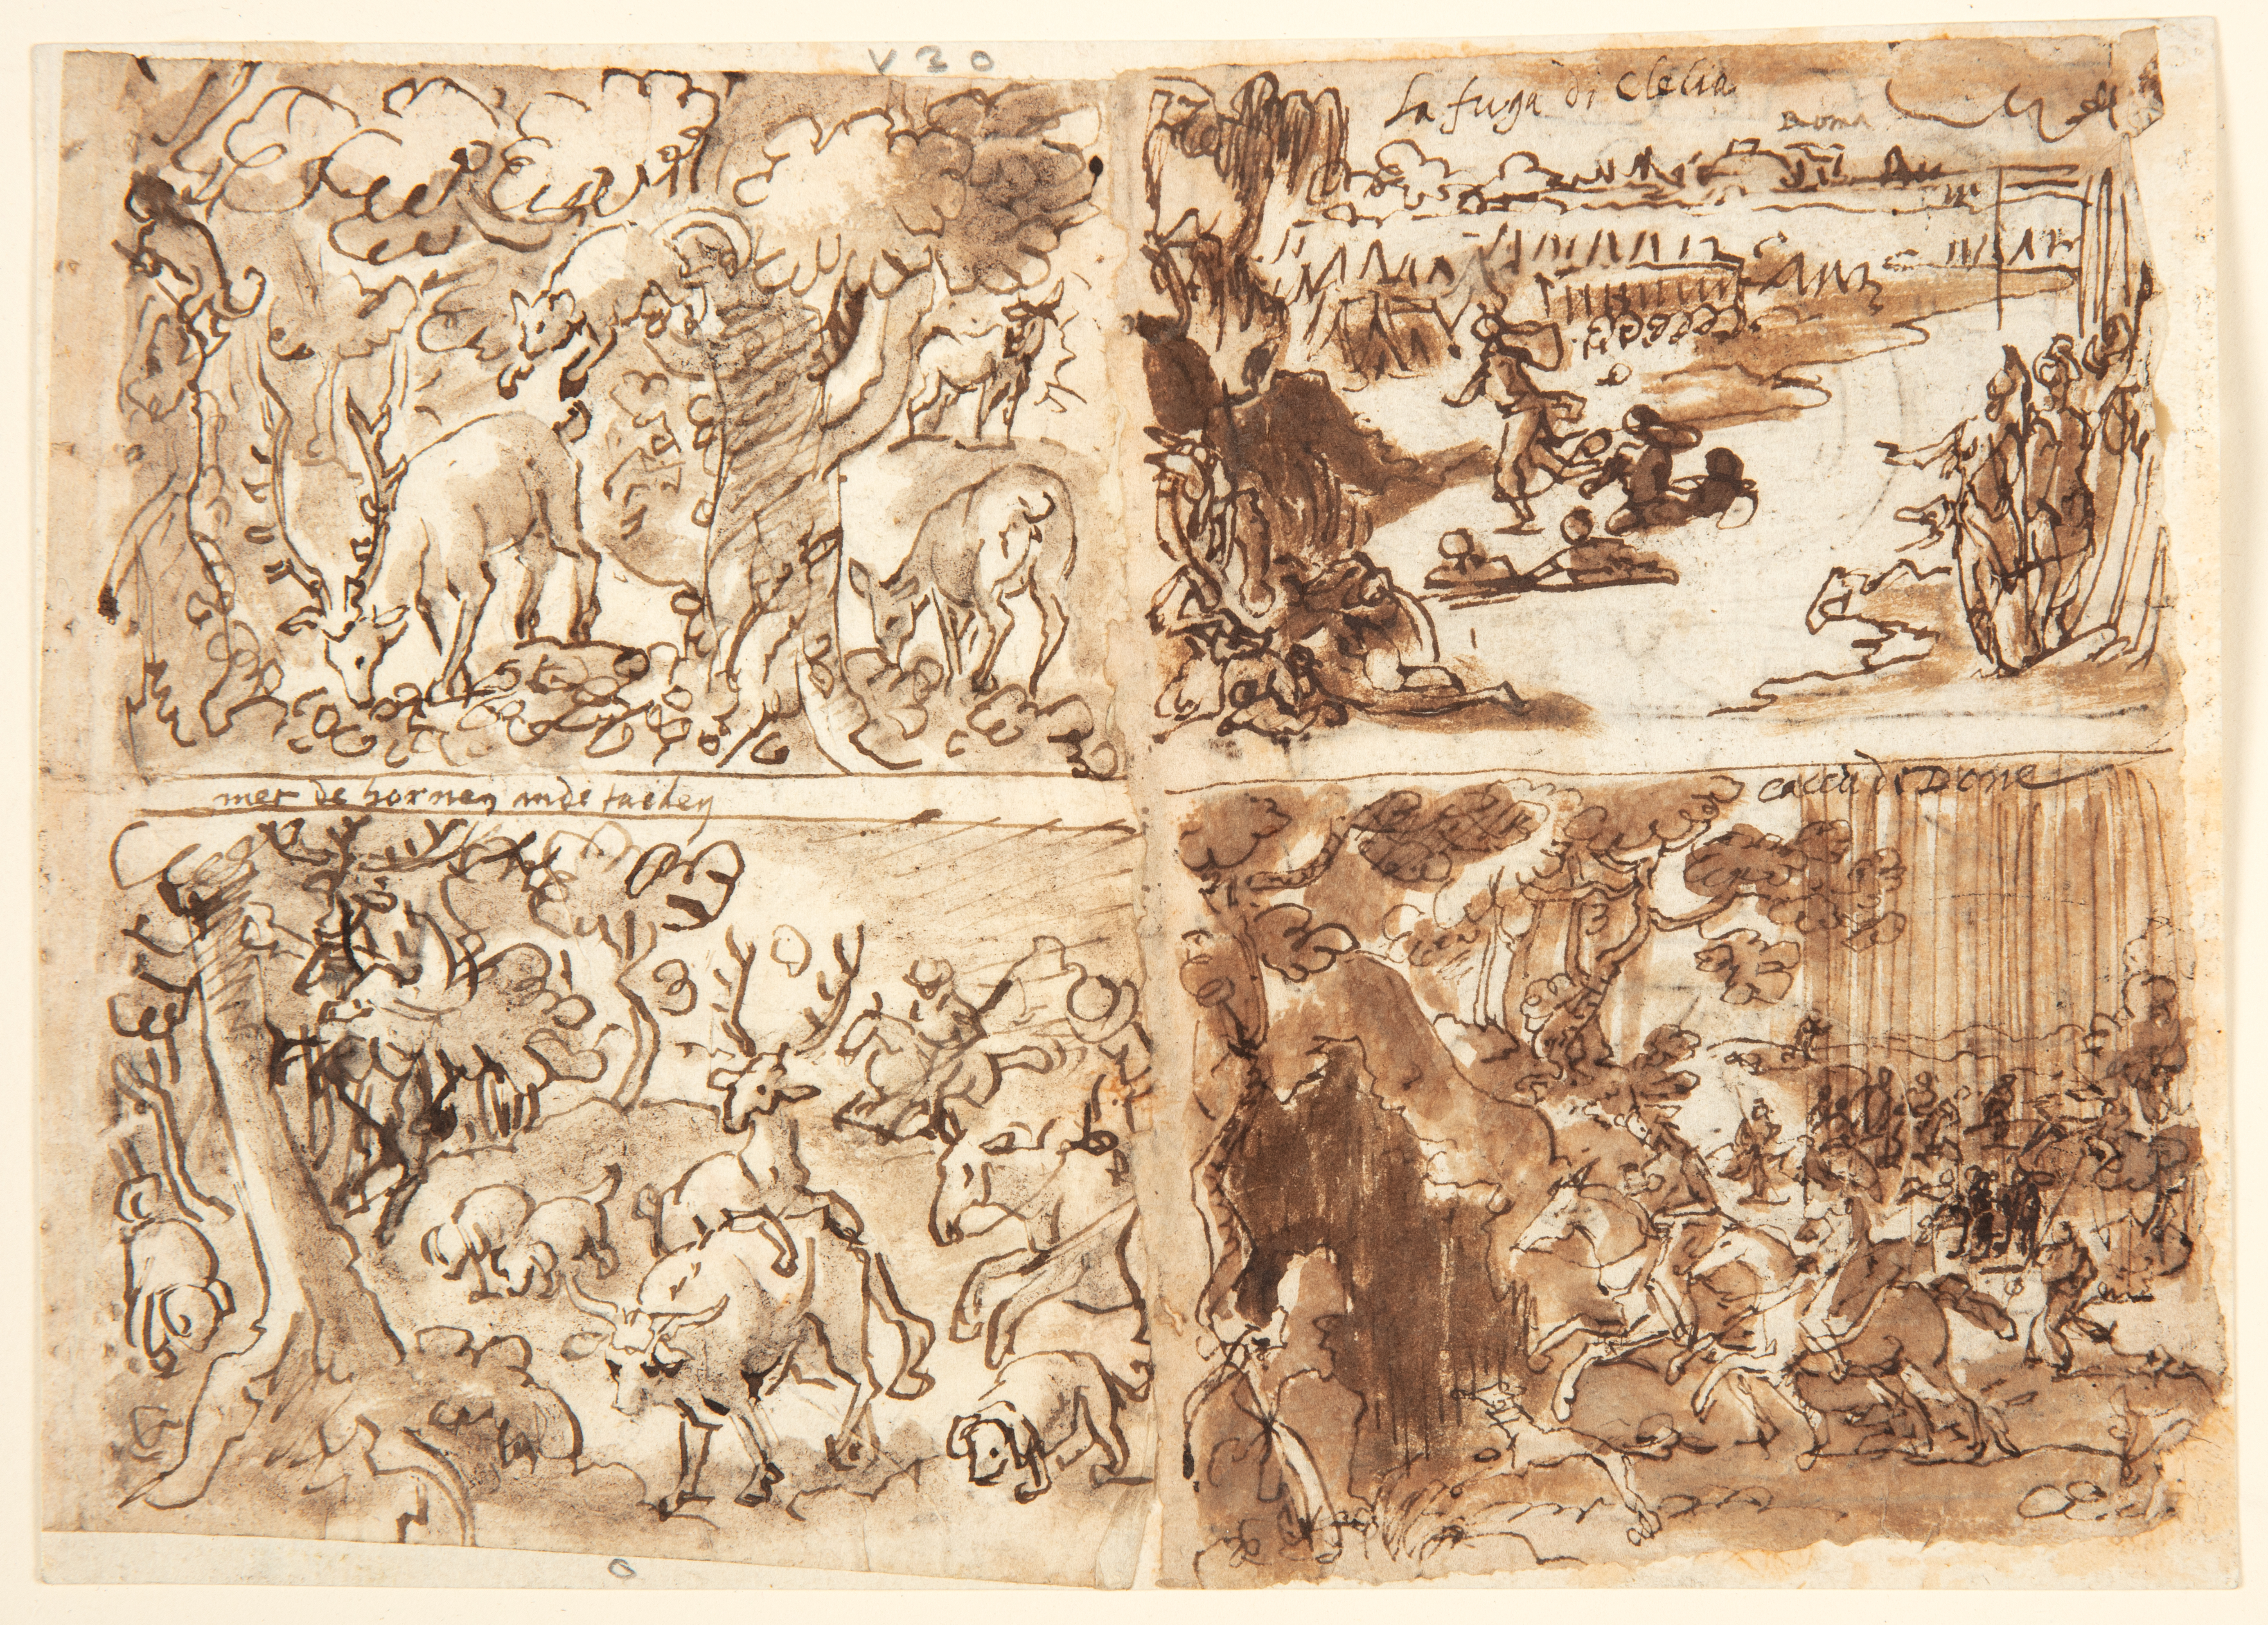 V 20
La fuga di Clelia
Roma
met de hornen inde
caccia di Done